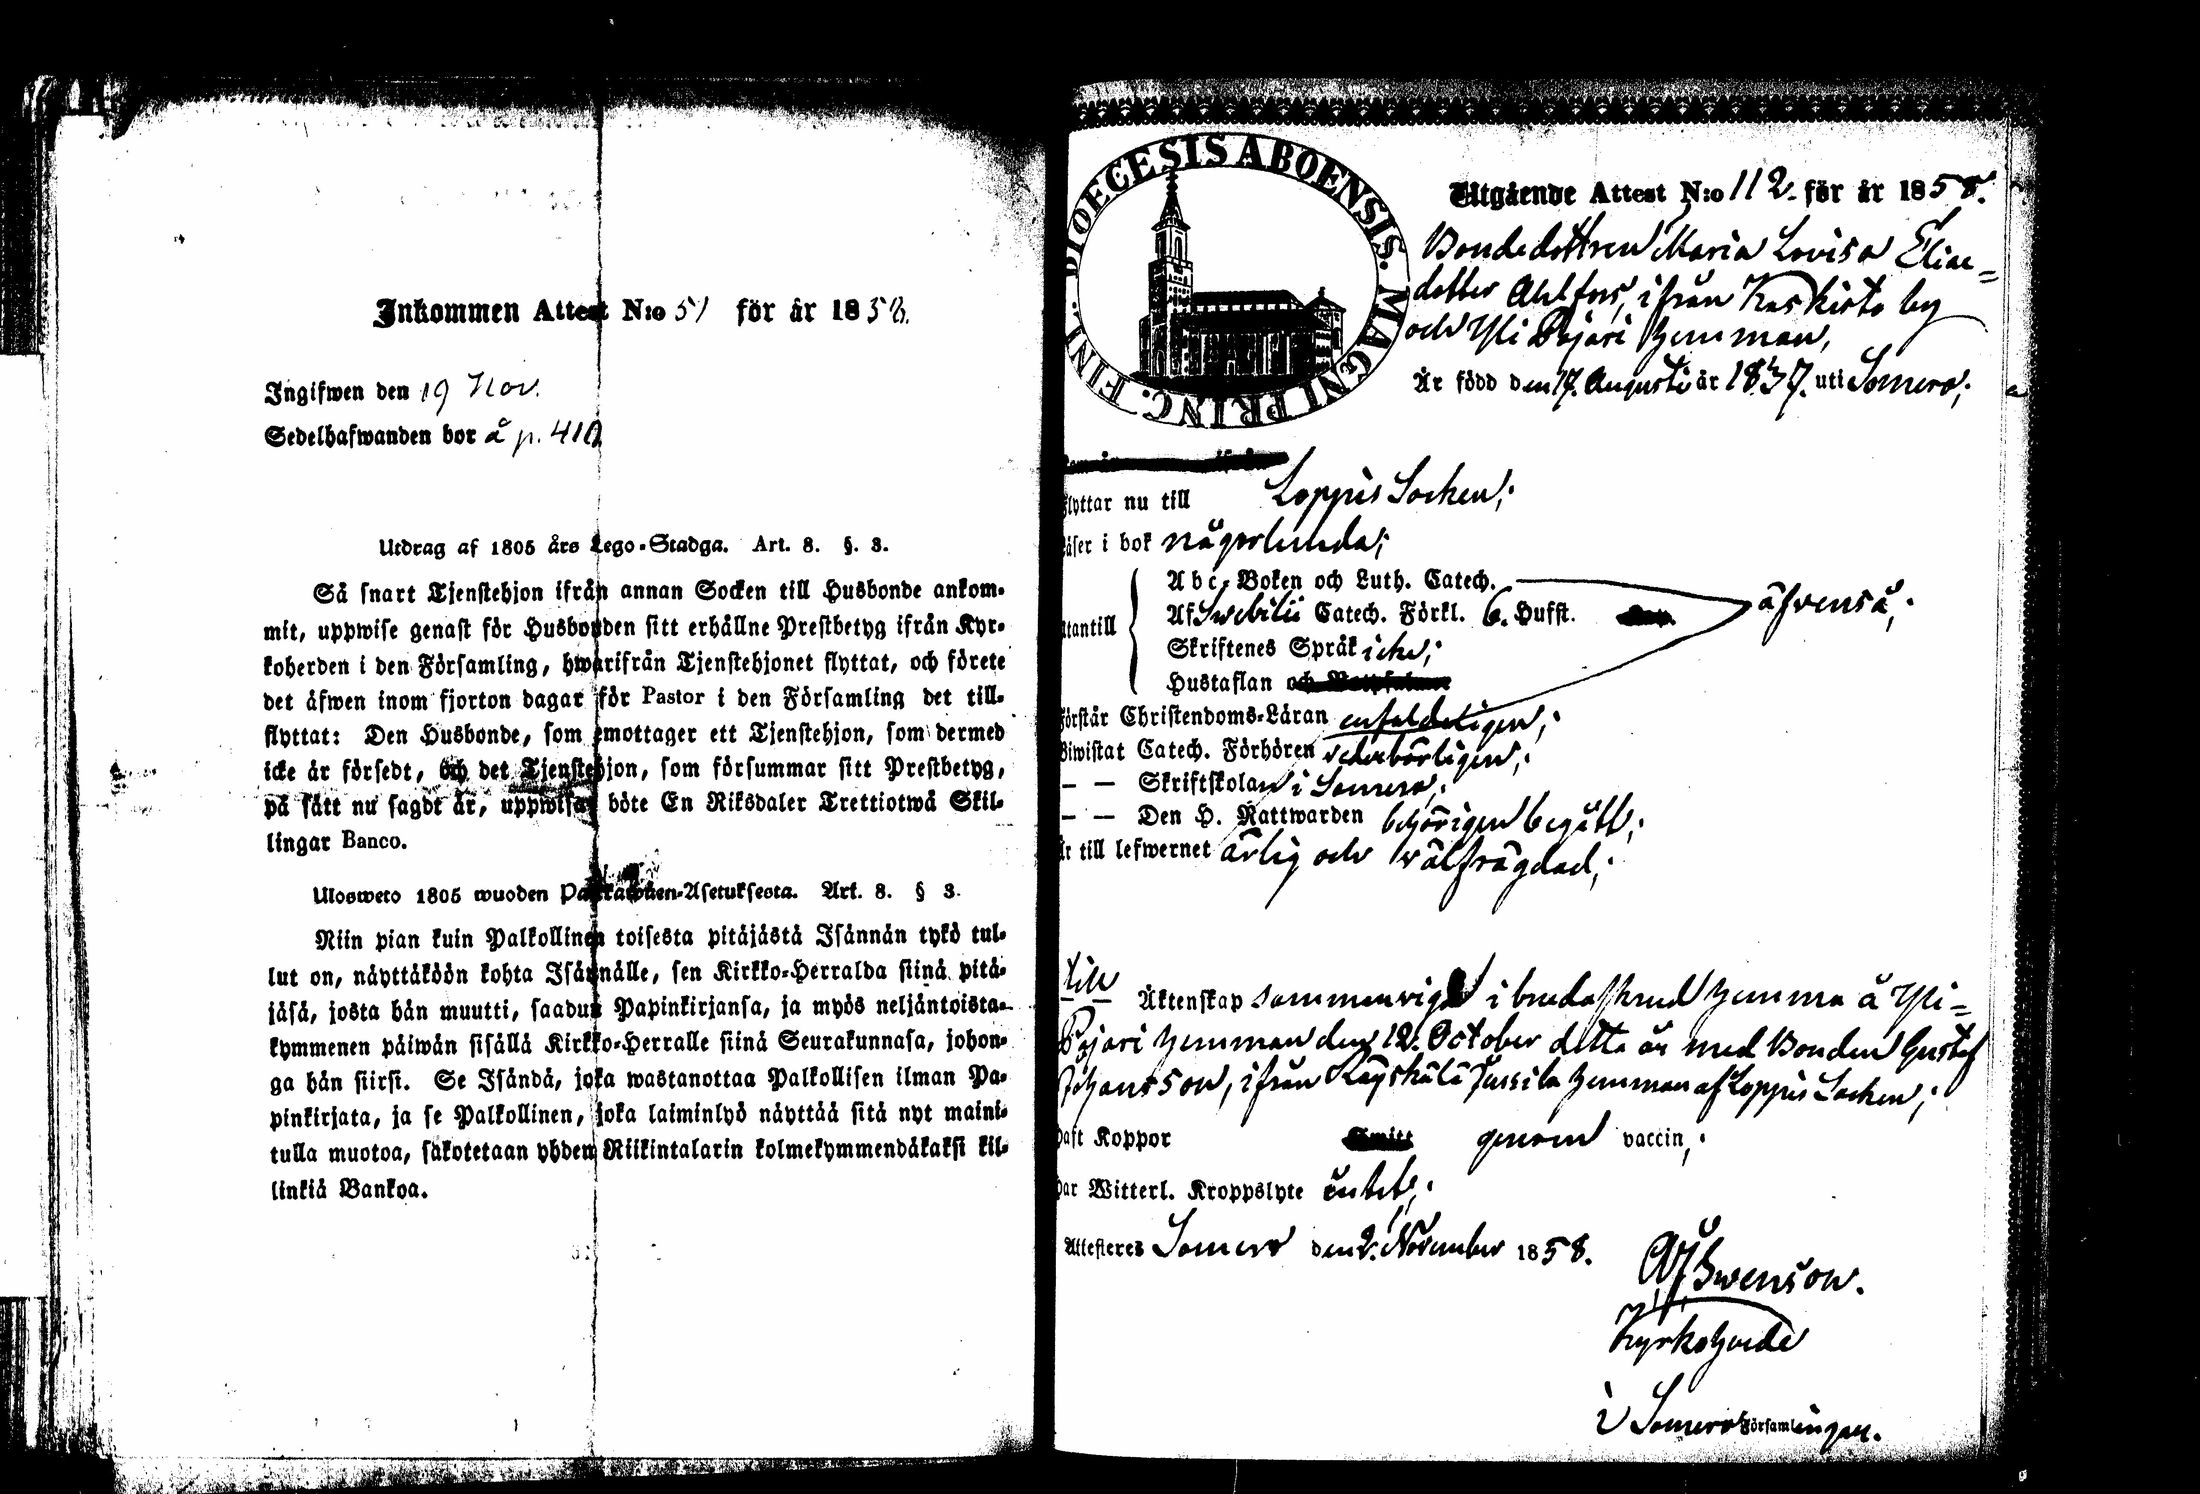 Inkommen Attest N:o 51 för år 1858.
Ingifwen den 19 Nov.
Sedelhafwanden bor å p. 410
Utdrag af 1805 års Lego-Stadga. Art. 8. §. 3.
Så snart Tjenstehjon ifrån annan Socken till Husbonde ankom-
mit, uppwise genast för Husbonden sitt erhållne Prestbetyg ifrån Kyr-
koherden i den Församling, hwarifrån Tjenstehjonet flyttat, och förete
det äfwen inom fjorton dagar för Pastor i den Församling det till-
flyttat: Den Husbonde, som emottager ett Tjenstehjon, som dermed
icke är försedt, och det Tjenstehjon, som försummar sitt Prestbetyg,
på sätt nu sagdt är, uppwisa, böte En Riksdaler Trettiotwå Skil-
lingar Banco.
Ulosweto 1805 wuoden Palkawäen-Asetuksesta. Art. 8. § 3.
Niin pian kuin Palkollinen toisesta pitäjästä Isännän tykö tul-
lut on, näyttäköön kohta Isännälle, sen Kirkko-Herralda siinä pitä-
jäsä, josta hän muutti, saadun Papinkirjansa, ja myös neljäntoista-
kymmenen päiwän sisällä Kirkko-Herralle siinä Seurakunnasa, johon-
ga hän siirsi. Se Isändä, joka wastanottaa Palkollisen ilman Pa-
pinkirjata, ja se Palkollinen, joka laiminlyö näyttää sitä nyt maini-
tulla muotoa, sakotetaan yhden Riikintalarin kolmekymmendäkaksi kil-
linkiä Bankoa.
DIOECESIS ABOENSIS. MAGNI PRINC. FINL.
Utgående Attest N:o 112. för år 1858.
Bondedottren Maria Lovisa Eliæ-
dotter Ahlfors, ifrån Kaskisto by
och Yli Pajari hemman,
Är född den 17. Augusti år 1837. uti Somero;
flyttar nu till Loppis Socken;
Läser i bok någorlunda;
Utantill Abc-Boken och Luth. Catech.
Af Swebilii Catech. Förkl. 6. Hufst. äfvenså;
Skriftenes Språk icke;
Hustaflan
Förstår Christendoms-Läran enfaldeligen;
Biwistat Catech. Förhören vederbörligen;
— — Skriftskolan i Somero;
— — Den H. Nattwarden behörigen begått;
Är till lefwernet ärlig och wälfrägdad;
till
Äktenskap sammanvigd i brudaskrud hemma å Yli-
Pajari hemman den 12. October detta år med Bonden Gustaf
Johansson, ifrån Räyskälä Jussila hemman af Loppis Socken;
Haft Koppor genom vaccin;
Har Witterl. Kroppslyte intet;
Attesteres Somero den 2. November 1858.
Swenson.
Kyrkoherde
i Somero Församlingen.